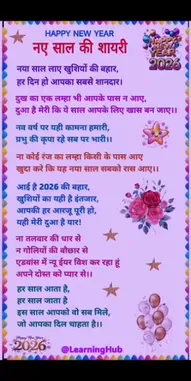 HAPPY NEW YEAR
नए साल की शायरी
नया साल लाए खुशियों की बहार,
हर दिन हो आपका सबसे शानदार।
दुख का एक लम्हा भी आपके पास न आए,
दुआ है मेरी कि ये साल आपके लिए खास बन जाए।
नव वर्ष पर यही कामना हमारी,
प्रभु की कृपा रहे सब पर भारी।
ना कोई रंज का लम्हा किसी के पास आए
खुदा करे कि यह नया साल सबको रास आए।
आई है 2026 की बहार,
खुशियों का यही है इंतजार,
आपकी हर आरजू पूरी हो,
यही मेरी दुआ है यार!
ना तलवार की धार से
न गोलियों की बौछार से
एडवांस में न्यू ईयर विश कर रहा हूं
अपने दोस्त को प्यार से।
हर साल आता है,
हर साल जाता है
इस साल आपको वो सब मिले,
जो आपका दिल चाहता है।
2026
@LearningHub